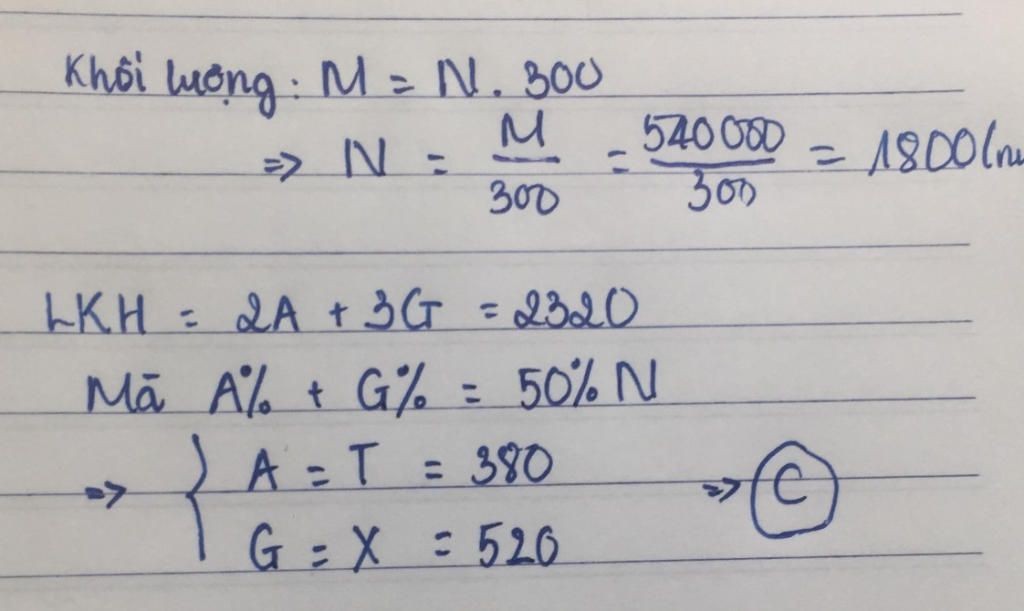 Khối lượng: M = N. 300
=> N = M/300 = 540000/300 = 1800 (nu
LKH = 2A + 3G = 2320
Mã A% + G% = 50% N
=> { A = T = 380
G = X = 520 => C